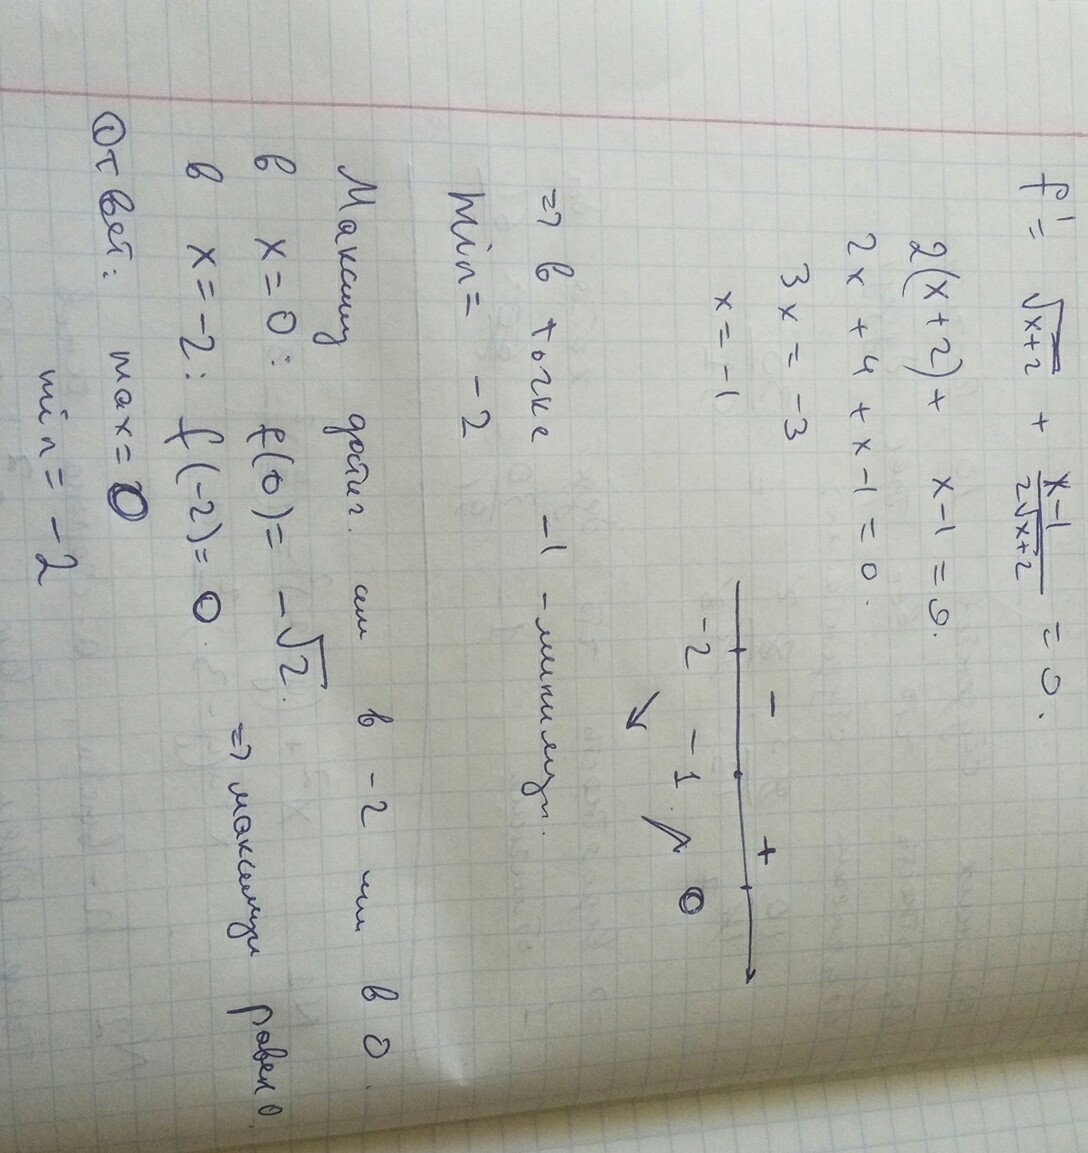 f' = √x+2 + x-1/2√x+2 = 0.
2(x+2) + x-1 = 0.
2x + 4 + x - 1 = 0.
3x = -3
x = -1
- +
-2 -1 0
=> в точке -1 - минимум.
min = -2
Максимум достиг. или в -2 или в 0.
в x = 0: f(0) = -√2.
в x = -2: f(-2) = 0. => максимум равен 0.
Ответ: max = 0
min = -2